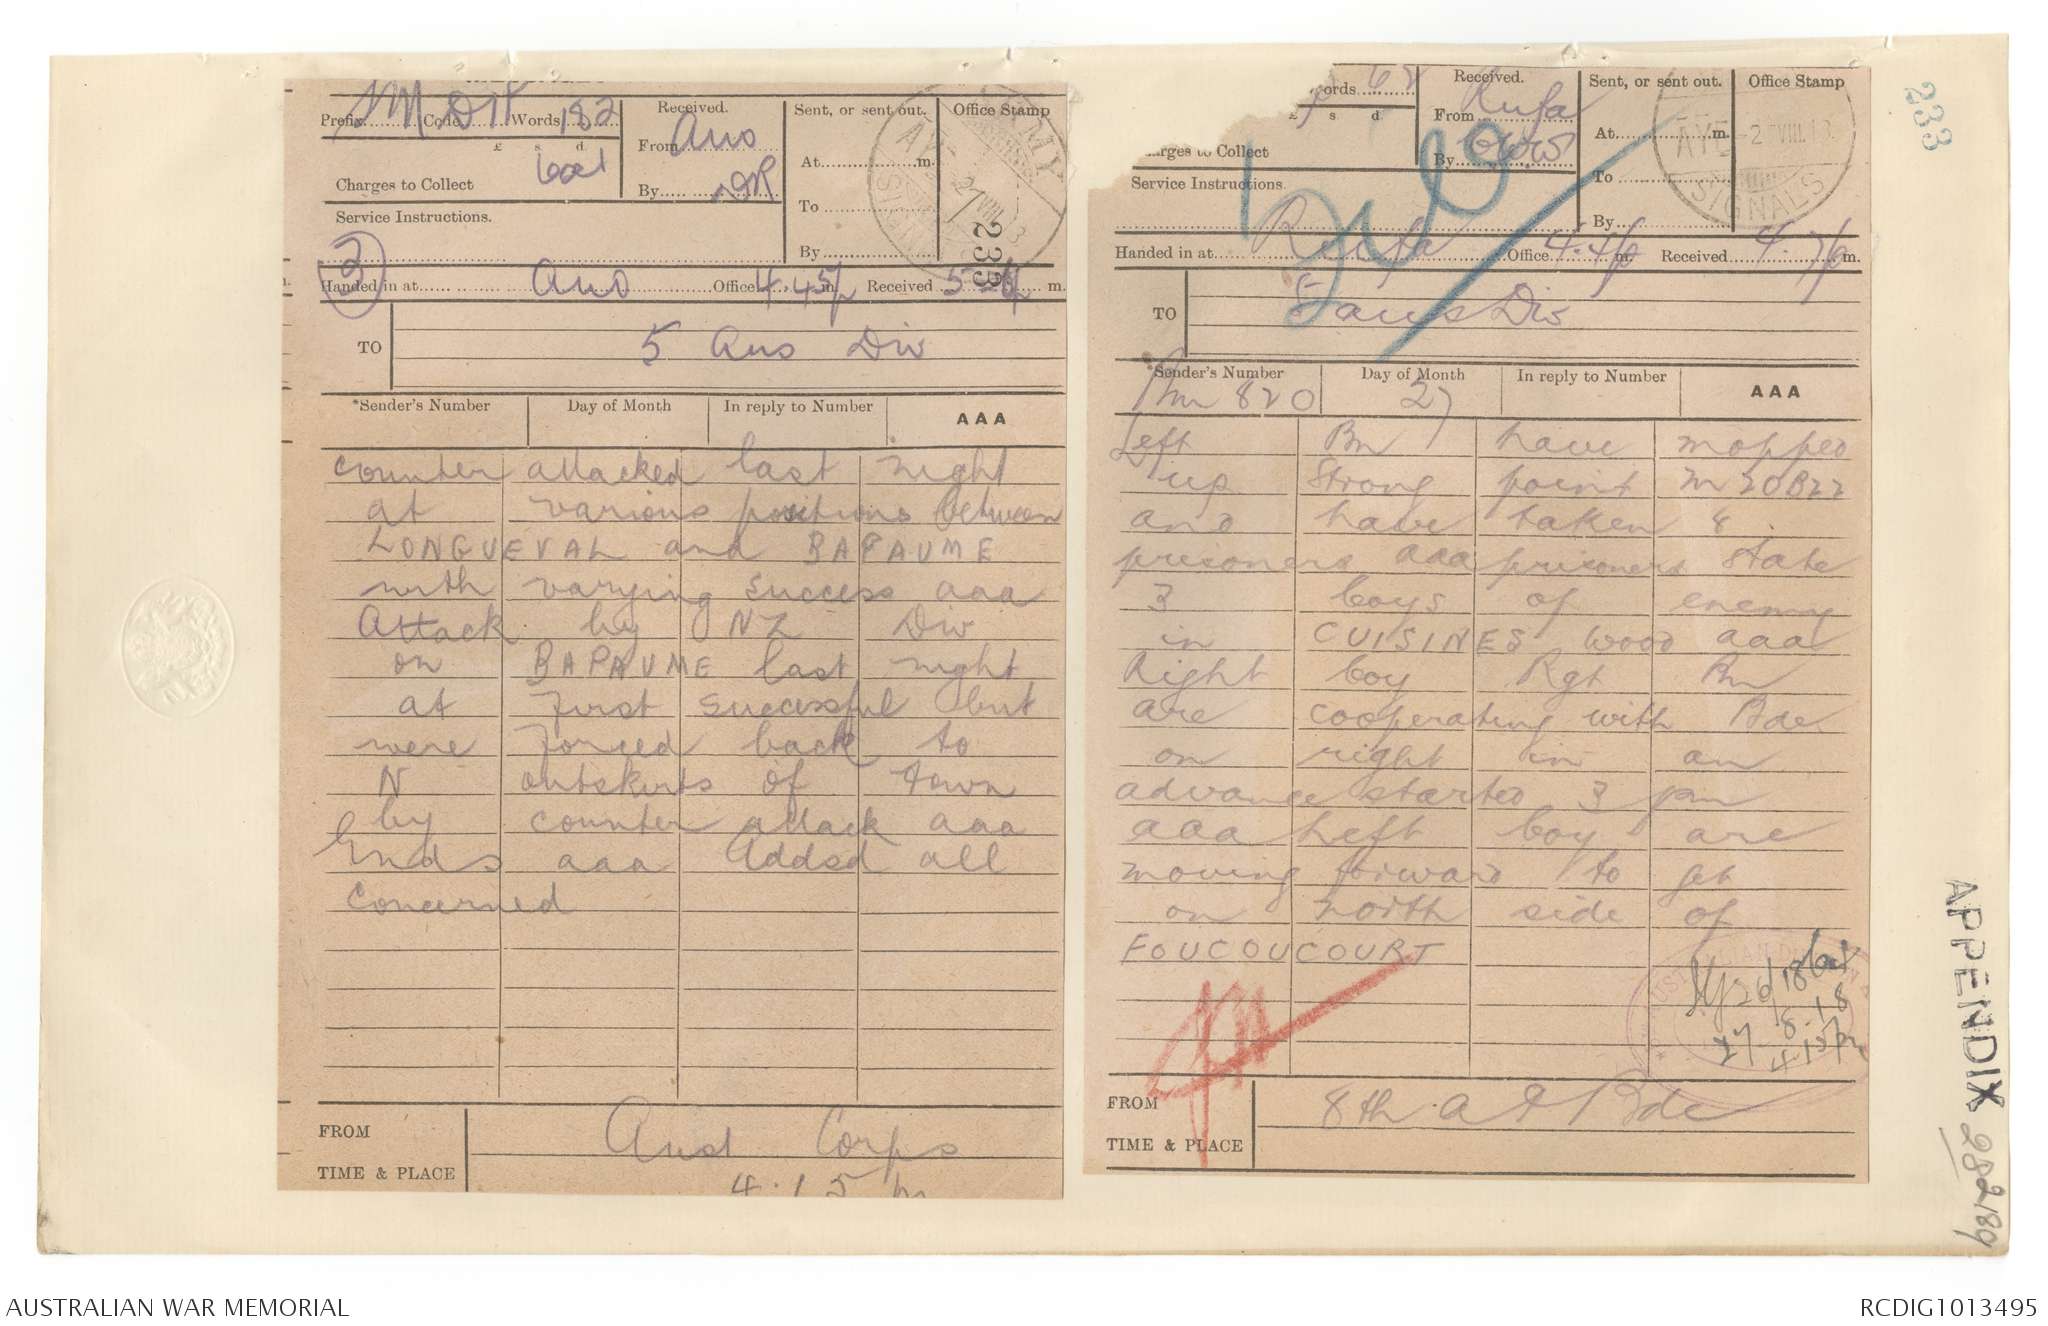 Prefix SM Code DTF Words 182
£ s. d.
Charges to Collect
Service Instructions.
Received.
From Aus
By DR
Sent, or sent out.
At m.
To
By
Office Stamp
ARMY
SIGNALS
233
3
Handed in at Aus Office 4.45p m. Received m.
TO
5 Aus Div
*Sender's Number
Day of Month
In reply to Number
AAA
counter attacked last night
at various positions between
LONGUEVAL and BAPAUME
with varying success aaa
Attack by NZ Div
on BAPAUME last night
at first successful but
were forced back to
N outskirts of town
by counter attack aaa
Ends aaa Addsd all
concerned
FROM
TIME & PLACE
Aust Corps
4.15 p
ords 62
s d
arges to Collect
Service Instructions.
Received.
From Rufa
By
Sent, or sent out.
At m.
To
By
Office Stamp
AYE
SIGNALS
233
Handed in at Rufa Office 4.4p m. Received 4.7p m.
TO
5 Aus Div
*Sender's Number
Bm 820
Day of Month
27
In reply to Number
AAA
Left Bn have mopped
up strong point M20B22
and have taken 8
prisoners aaa prisoners state
3 coys of enemy
in CUISINES Wood aaa
Right coy Rgt Bn
are cooperating with Bde
on right in an
advance started 3 pm
aaa Left coy are
moving forward to get
on north side of
FOUCOUCOURT
27.8.18
4.15pm
FROM
TIME & PLACE
8th A I Bde
APPENDIX 282
189
AUSTRALIAN WAR MEMORIAL
RCDIG1013495